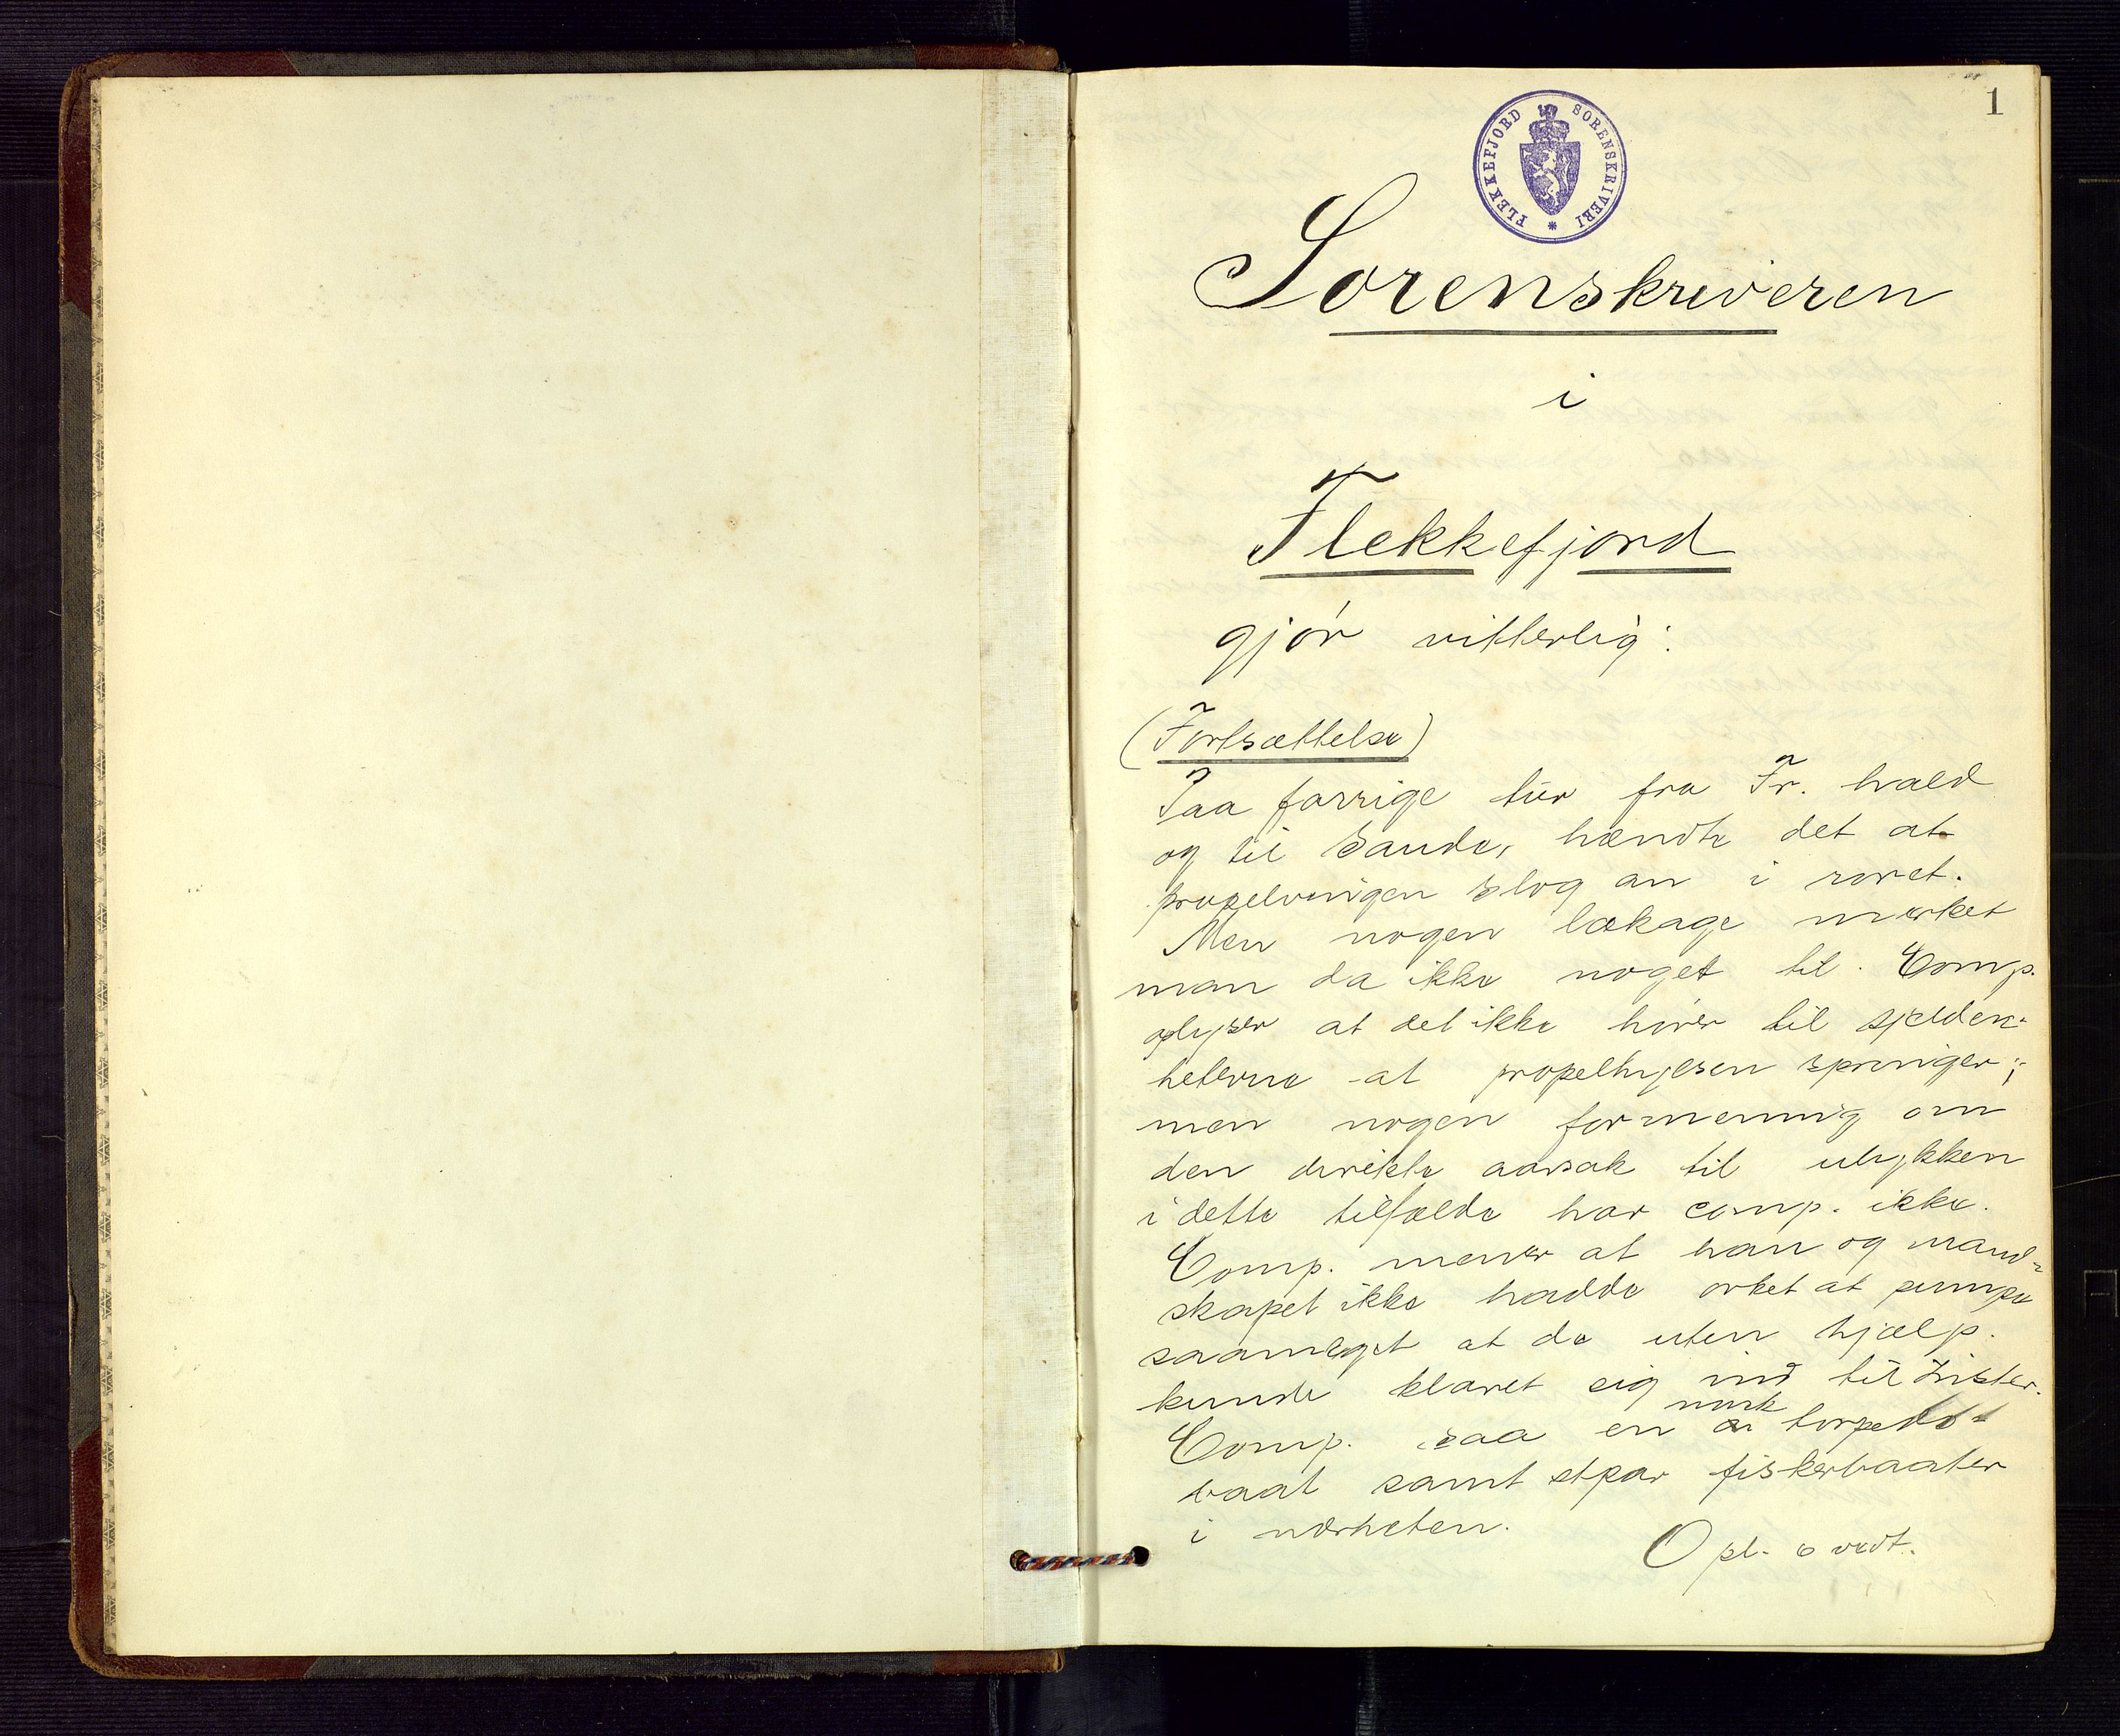 1
FLEKKEFJORD SORENSKRIVERI
Sorenskriveren
i
Flekkefjord
gjør vitterlig:
(Fortsættelse)
Paa forrige tur fra Fr. hald
og til Sande, hændte det at
propelvingen slog an i roret.
Men nogen lækage merket
man da ikke noget til. Comp.
oplyser at det ikke hører til sjelden-
heterne at propelhylsen springer;
men nogen formening om
den direkte aarsak til ulykken
i dette tilfælde har comp. ikke.
Comp. mener at han og mand-
skapet ikke hadde orket at pumpe
saameget at de uten hjælp.
kunde klaret sig ind til Lister.
norsk
Comp. saa en torpedo-
baat samt et par fiskerbaater
i nærheten.
Opl. o vedt.